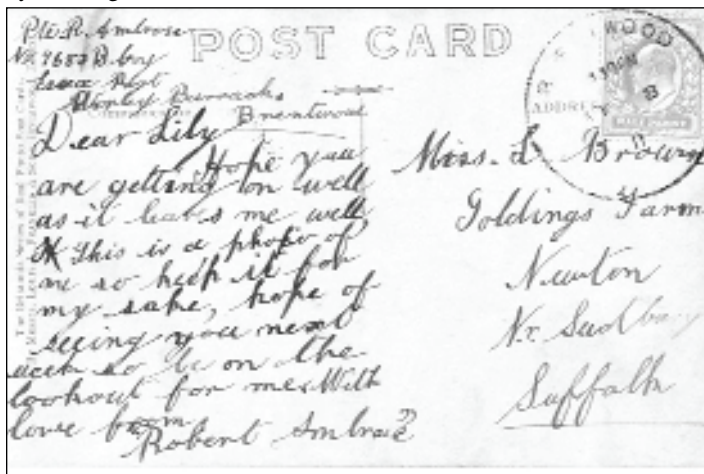 Pte. R. Ambrose
No 9687 B. Coy
Essex Regt
Warley Barracks
Brentwood
POST CARD
WOOD
ADDRESS
HALF PENNY
Dear Lily
Hope you
are getting on well
as it leaves me well,
this is a photo of
me so keep it for
my sake, hope of
seeing you next
week so be on the
lookout for me. With
love from
Robert
Miss. L. Brown
Goldings Farm
Newton
Nr. Sudbury
Suffolk